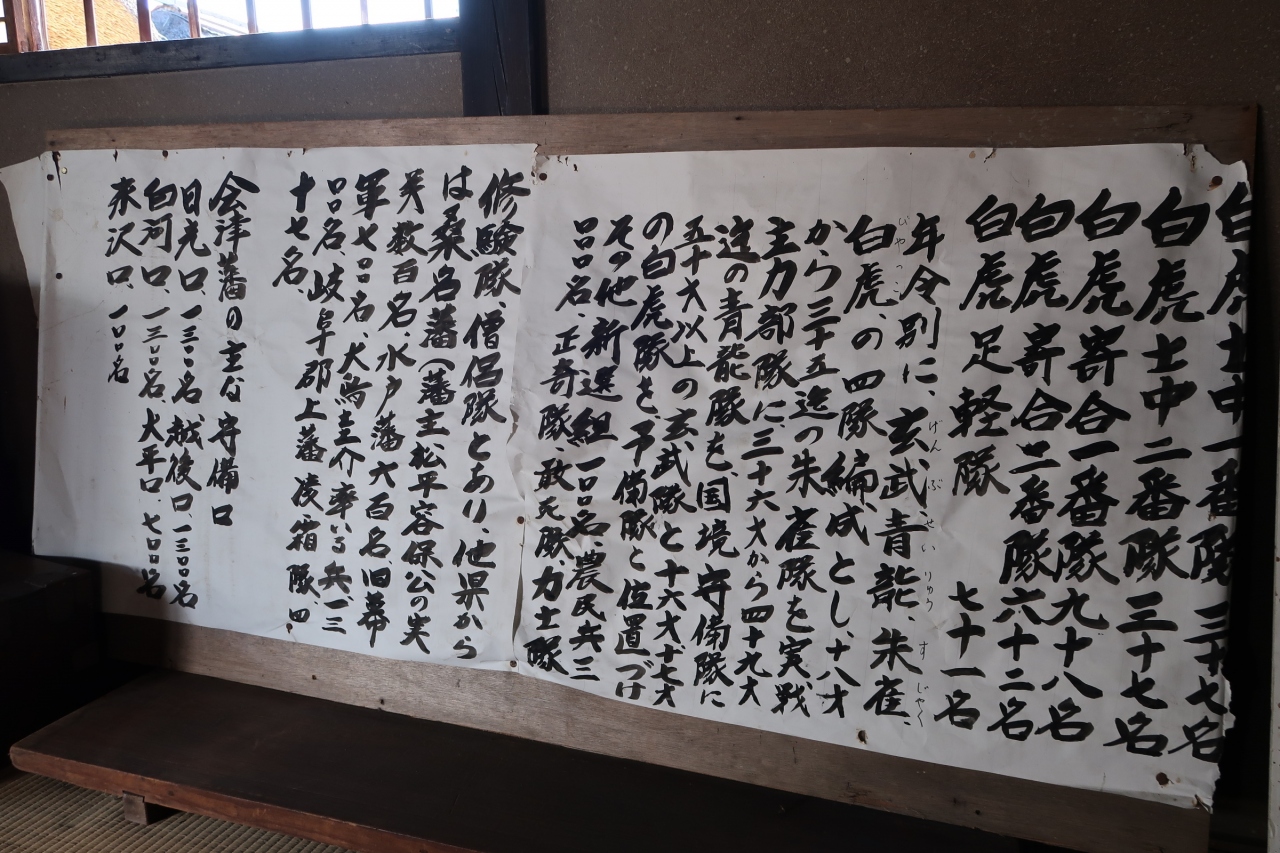 白虎士中一番隊三十七名
白虎士中二番隊三十七名
白虎寄合一番隊九十八名
白虎寄合二番隊六十二名
白虎足軽隊 七十一名
年令別に、玄武、青龍、朱雀、
げんぶ せいりゅう すじゃく
白虎、の四隊編成とし、十八才
びゃっこ
から三十五迄の朱雀隊を実戦
主力部隊に、三十六才から四十九才
迄の青龍隊を、国境守備隊に
五十才以上の玄武隊と十六才十七才
の白虎隊を予備隊と位置づけ
その他新選組一〇〇名、農民兵三
〇〇〇名、正奇隊、敢死隊、力士隊
修験隊、僧侶隊とあり、他県から
は桑名藩(藩主、松平容保公の実
弟数百名、水戸藩六百名旧幕
軍七〇〇名、大鳥圭介率いる兵一三
〇〇名、岐阜郡上藩凌霜隊、四
十七名、
会津藩の主な守備口
日光口、一三〇〇名越後口、一三〇〇名
白河口、一三〇〇名大平口、七〇〇名
米沢口、一〇〇名